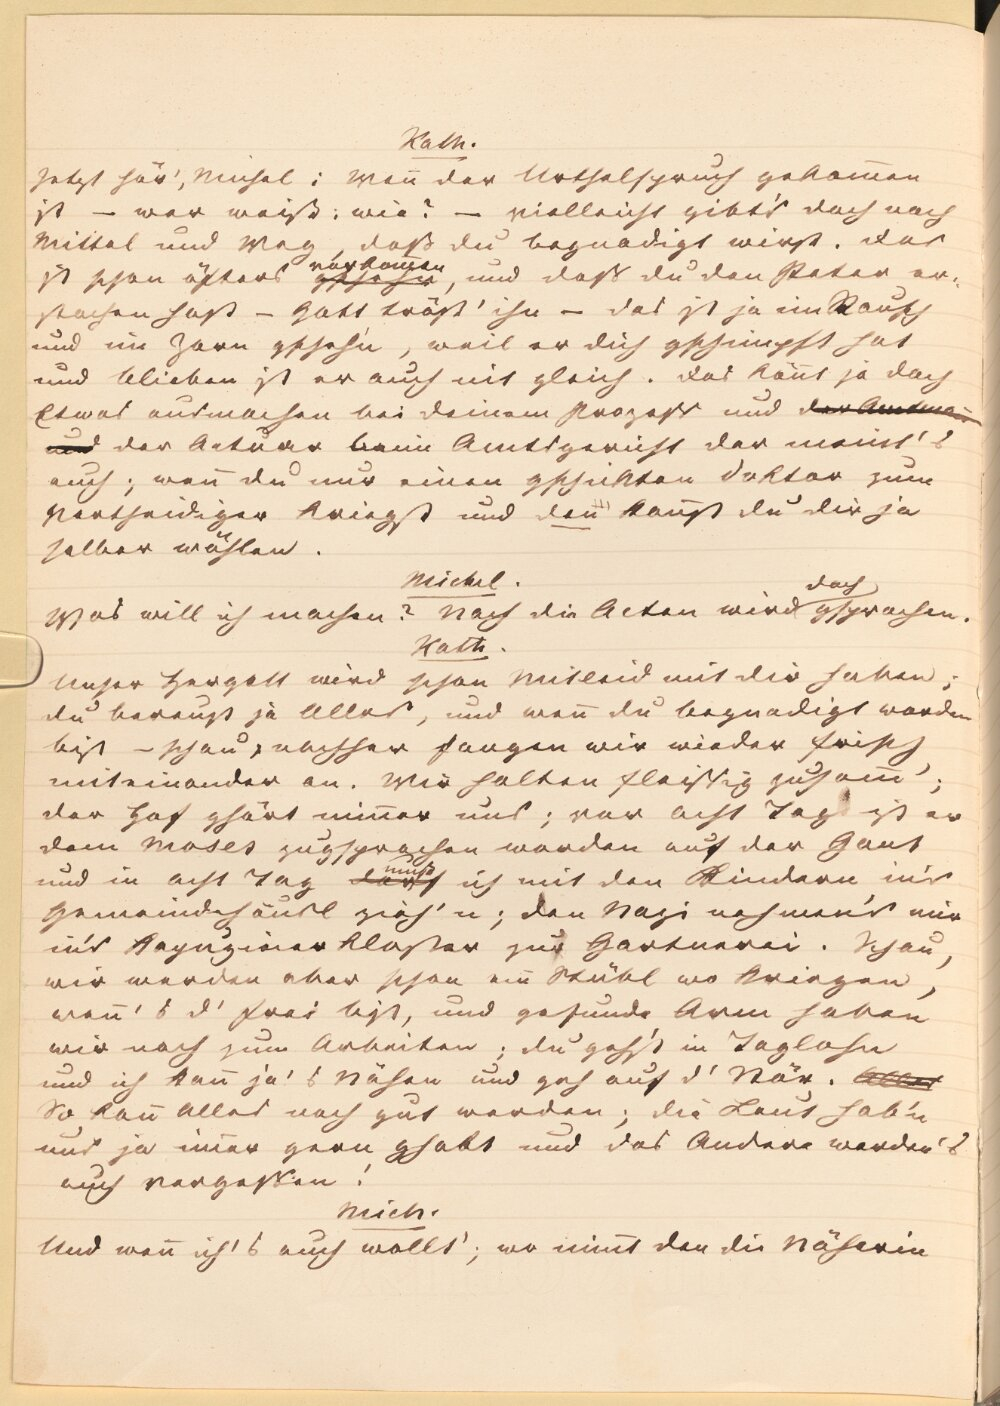 Kath.
Jetzt hör', Michel; Wen̄ der Urthelspruch gekom̄en
ist – wer weiß; wie? – vielleicht gibt's doch noch
Mittel und Weg, daß du begnadigt wirst. Das
ist schon öfters geschehn vorkom̄en, und daß du den Peter er-
stochen hast – Gott tröst' ihn – das ist ja im Rausch
und im Zorn gscheh'n, weil er dich gschimpft hat
und blieben ist er auch nit gleich. Das kön̄t ja doch
Etwas ausmachen bei deinem Prozess und der Amtman̄
und der Actuar beim Amtsgericht der meint's
auch; wen̄ du nur einen gschikten Doktor zum
Vertheidiger kriegst und den kan̄st du dir ja
selber wählen.
Michel.
Was will ich machen? Nach die Acten wird doch gsprochen.
Kath.
Unser Hergott wird schon Mitleid mit dir haben;
du bereust ja Alles, und wen̄ du begnadigt worden
bist – schau, nachher fangen wir wieder frisch
miteinander an. Wir halten fleißig zusam̄';
der Hof ghört nim̄er uns; vor acht Tag ist er
dem Moses zugsprochen worden auf der Gant
und in acht Tag darf muß ich mit den Kindern in's
Gemeindehäusl zieh'n; den Nazi nehmen's mir
in's Kapuzinerkloster zur Gartnerei. Schau,
wir werden aber schon ein Stübl wo kriegen,
wen̄'s d' frei bist, und gesunde Arm haben
wir noch zum Arbeiten; du gehst in Taglohn
und ich kan̄ ja's Nähen und geh auf d' Stör. Alles
So kan̄ Alles noch gut werden; die Leut hab'n
uns ja im̄er gern ghabt und das Andere werden's
auch vergessen!
Mich.
Und wen̄ ich's auch wollt'; wo nim̄t den die Näherin